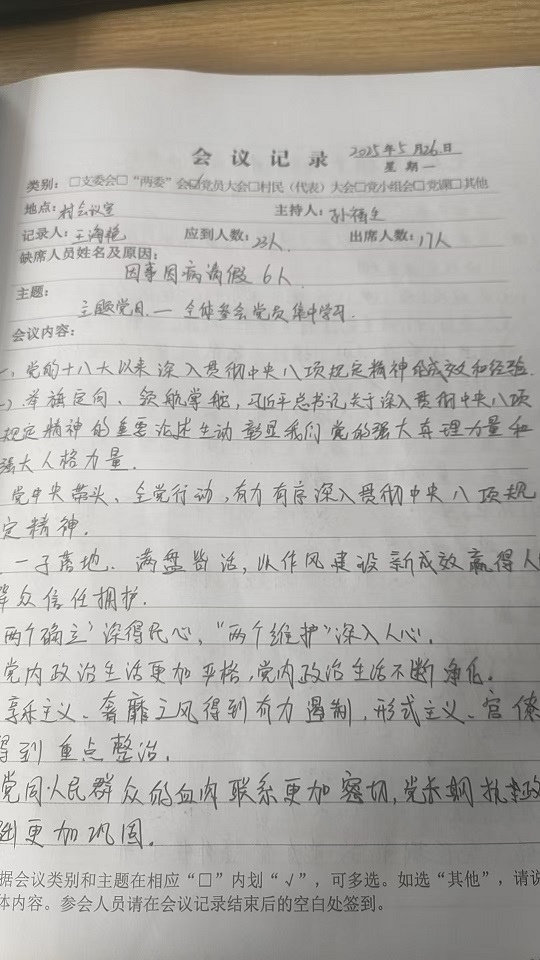 会议记录 2025年5月26日
星期一
类别：□支委会□“两委”会☑党员大会□村民（代表）大会□党小组会□党课□其他
地点：村会议室 主持人：孙
记录人：王海艳 应到人数：23人 出席人数：17人
缺席人员姓名及原因：
因事因病请假6人
主题：
主题党日 — 全体参会党员集中学习.
会议内容：
一，党的十八大以来深入贯彻中央八项规定精神的成效和经验.
)举旗定向、领航掌舵，习近平总书记关于深入贯彻中央八项
规定精神的重要论述生动彰显我们党的强大真理力量和
强大人格力量.
党中央带头、全党行动，有力有序深入贯彻中央八项规
定精神.
一子落地、满盘皆活，以作风建设新成效赢得人
群众信任拥护.
两个确立”深得民心，“两个维护”深入人心.
党内政治生活更加严格，党内政治生活不断净化.
享乐主义、奢靡之风得到有力遏制，形式主义、官僚
得到重点整治.
党同人民群众的血肉联系更加密切，党长期执政
础更加巩固.
据会议类别和主题在相应“□”内划“√”，可多选。如选“其他”，请说
体内容。参会人员请在会议记录结束后的空白处签到。